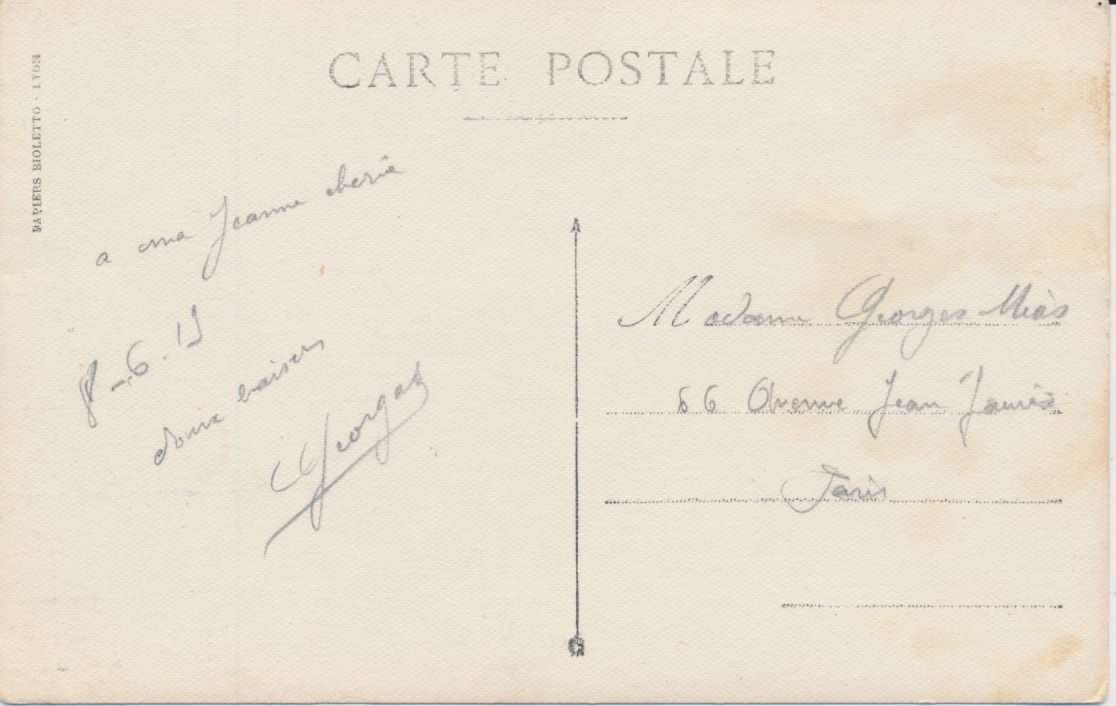 CARTE POSTALE
PAPIERS BIOLETTO - LYON
a ma Jeanne cherie
8-6-15
doux baisers
Georges
Madame Georges Mias
66 Avenue Jean Jaurès
Paris